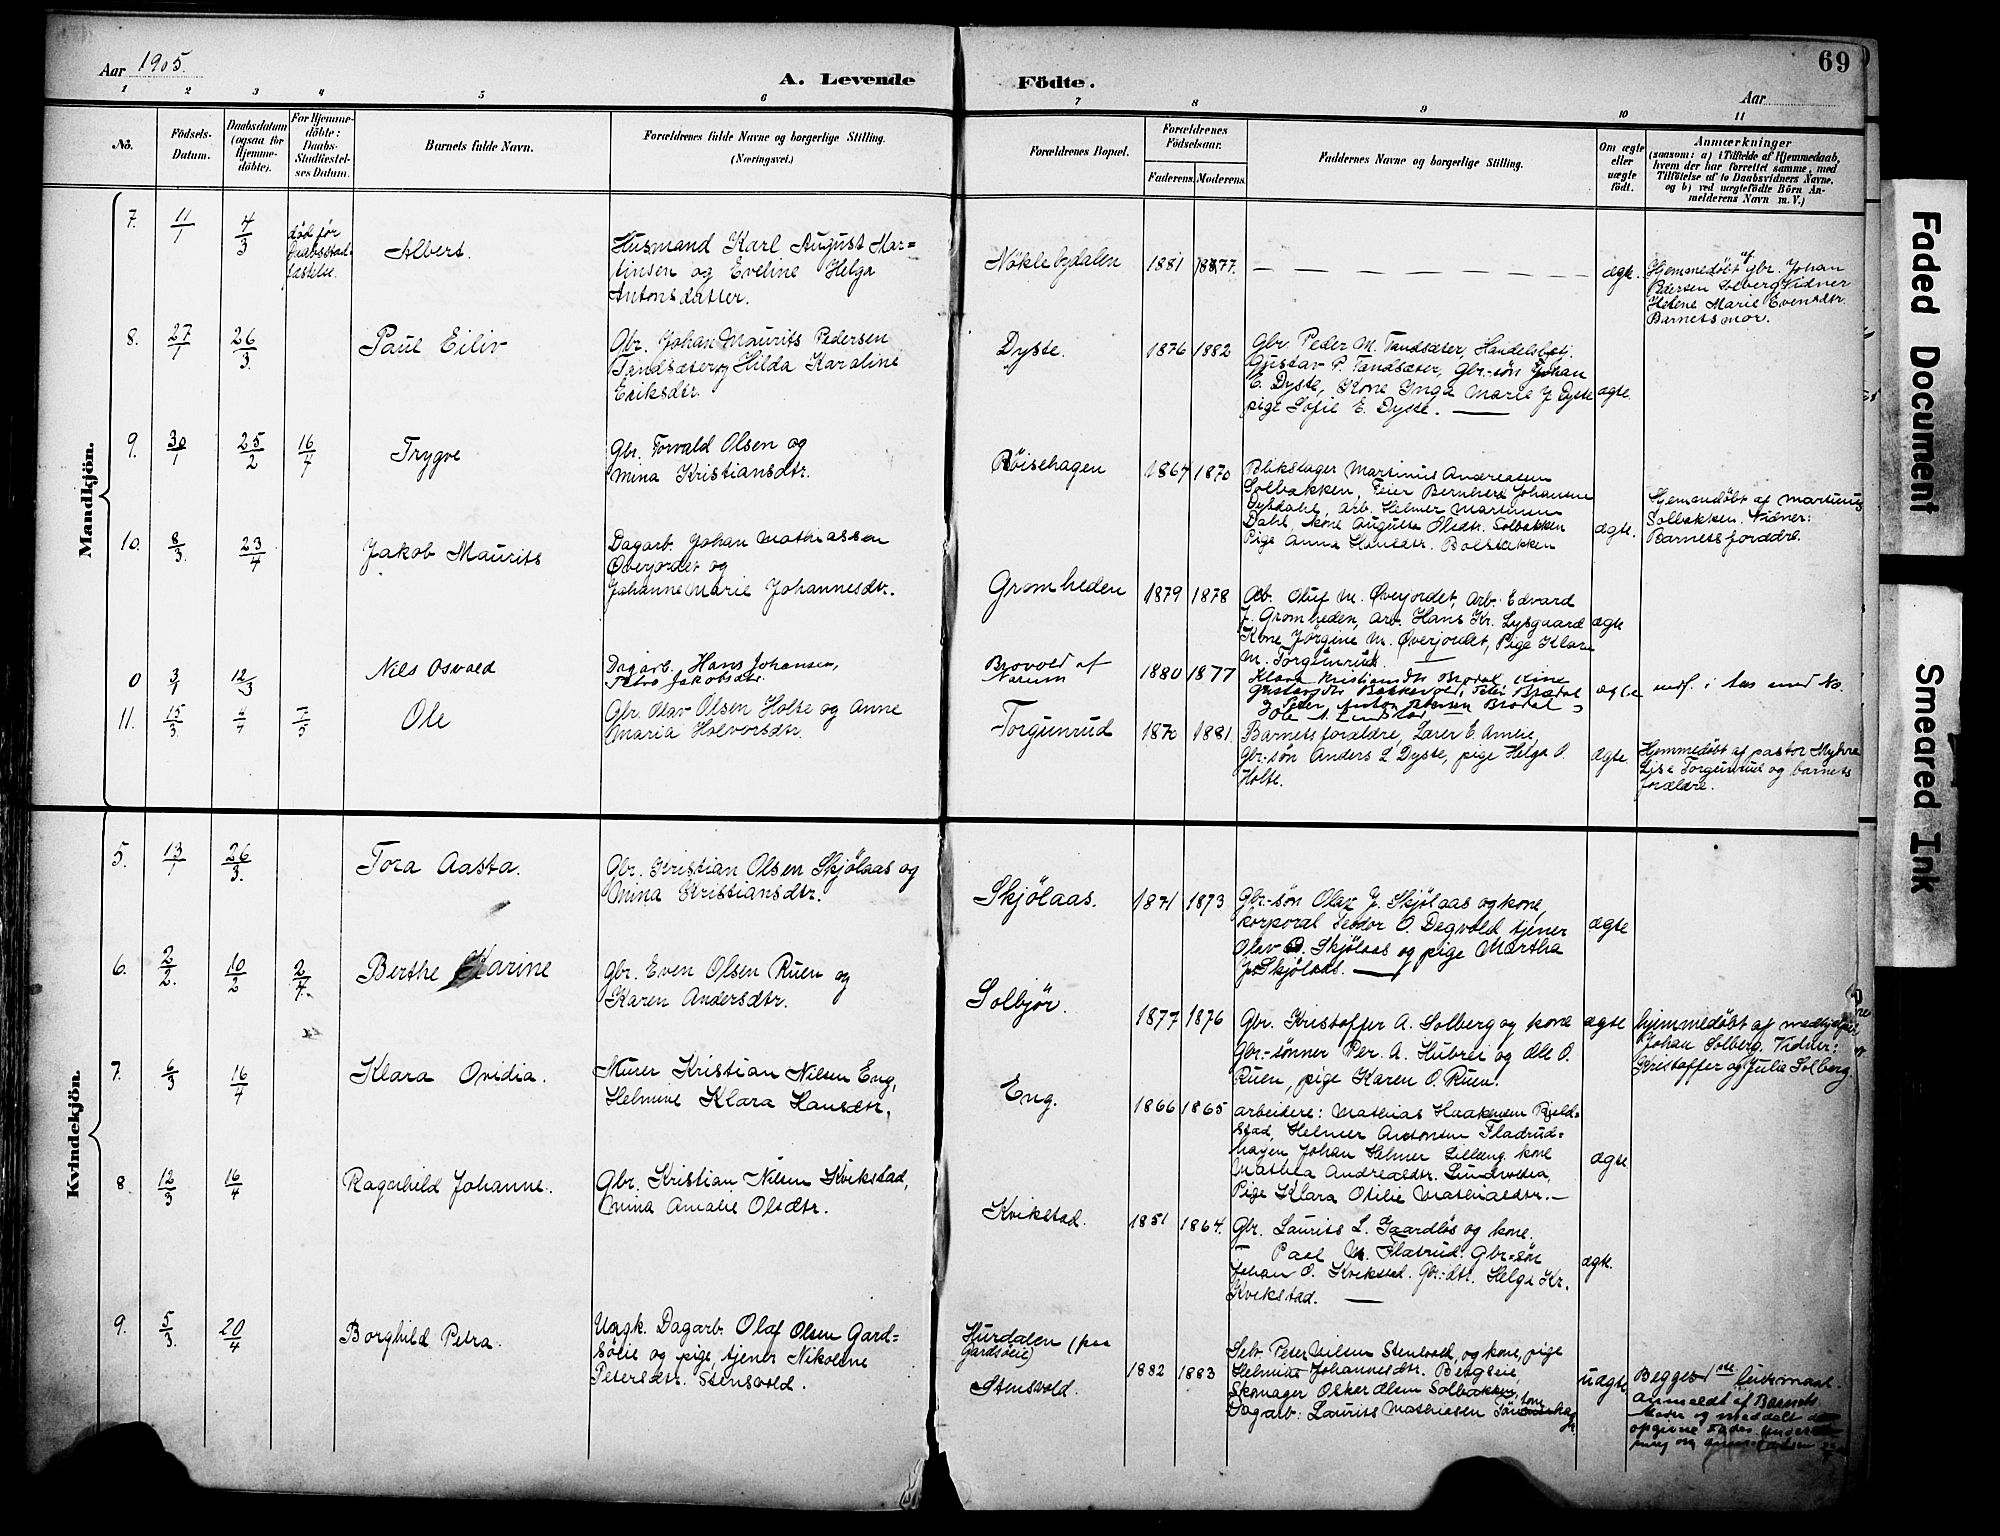 Aar 1905.
A. Levende Födte.
69
Aar
1 2 3 4 5 6 7 8 9 10 11
No.
Födsels-
Datum.
Daabsdatum
(ogsaa for
Hjemme-
döbte).
For Hjemme-
döbte:
Daabs-
Stadfæstel-
ses Datum.
Barnets fulde Navn.
Forældrenes fulde Navne og borgerlige Stilling.
(Næringsvei.)
Forældrenes Bopæl.
Forældrenes
Födselsaar.
Faderens. Moderens.
Faddernes Navne og borgerlige Stilling.
Om ægte
eller
uægte
födt.
Anmærkninger
(saasom: a) i Tilfælde af Hjemmedaab,
hvem der har forrettet samme, med
Tilföielse af to Daabsvidners Navne,
og b) ved uægtefödte Börn An-
melderens Navn m. V.)
Mandkjön.
7. 11/1 4/3
død før
Daabsstad-
fæstelse.
Albert.
Husmand Karl August Mar-
tinsen og Eveline Helga
Antonsdatter.
Nøklebydalen
1881 1877.
ægte.
Hjemmedøbt af gbr. Johan
Pedersen Solberg Vidner
Helene Marie Evensdtr.
Barnets mor.
8. 27/1 26/3
Paul Eiliv
Gbr. Johan Maurits Pedersen
Tandsæter og Hilda Karoline
Eriksdtr.
Dyste.
1876 1882
Gbr Peder M. Tandsæter, Handelsbetj.
Gustav P. Tandsæter, Gbr-søn Johan
E. Dyste, Kone Inga Marie J. Dyste
pige Sofie E. Dyste.
ægte.
9. 30/1 25/2 16/4
Trygve
Gbr. Torvald Olsen og
Mina Kristiansdtr.
Røisehagen
1867 1870
Blikslager Martinus Andreasen
Solbakken, Feier Bernhard Johansen
Dybdahl, arb. Helmer Martinsen
Dahl, Kone Augusta Olsdtr. Solbakken
Pige Anna Hansdtr. Bolstakken
ægte.
Hjemmedøbt af Martinus
Solbakken. Vidner:
Barnets forældre.
10. 8/3 23/4
Jakob Maurits
Dagarb. Johan Mathiassen
Øverjordet og
Johanne Marie Johannesdtr.
Gromheden
1879 1878
Arb. Oluf M. Øverjordet, Arb. Edvard
J. Gromheden, arb. Hans Kr. Lysgaard
Kone Jørgine M. Øverjordet, Pige Klara
M. Torgunrud.
ægte
0 3/1 12/3
Nils Osvald
Dagarb. Hans Johansen,
Petra Jakobsdtr.
Brovold af
Narum
1880 1877
Klara Kristiansdtr Brodal,
ægte
11. 15/3 4/4
Ole
Gbr. Olav Olsen Holte og Anne
Maria Halvorsdtr.
Torgunrud
1870 1881
Barnets forældre, Lærer E. Ameie,
Gbr-søn Anders L Dyste, pige Helga O.
Holte.
ægte.
Hjemmedøbt af pastor Myhre
Lise Torgunrud og barnets
forældre.
Kvindekjön.
5. 13/1 26/3
Tora Aasta.
Gbr. Kristian Olsen Skjølaas og
Mina Kristiansdtr.
Skjølaas.
1871 1873
Gbr-søn Olav J. Skjølaas og kone,
korporal Teodor O. Degvold tjener
Olav Skjølaas og pige Martha
J. Skjølaas.
ægte
6. 2/2. 10/2 2/4.
Berthe Karine
Gbr. Even Olsen Ruen og
Karen Andersdtr.
Solbjør.
1877 1876
Gbr. Kristoffer A. Solberg og kone
Gbr.-sønner Per. A. Hubrei og Ole O.
Ruen, pige Karen O. Ruen.
ægte
hjemmedøbt af medhjelper
Johan Solberg. Vidner:
Kristoffer og Julie Solberg.
7. 6/3 16/4
Klara Ovidia.
Murer Kristian Nilsen Eng,
Helmine Klara Hansdtr.
Eng.
1866 1865
arbeidere: Mathias Haakensen Kjeld-
stad, Helmer Antonsen Fladrud-
hagen Johan Helmer Lilleeng kone
Mathea Andreasdtr.
Pige Klara Otilie Mathiasdtr.
ægte
8 12/3 16/4
Ragnhild Johanne.
Gbr. Kristian Nilsen Kvikstad,
Mina Amalie Olsdtr.
Kvikstad.
1851 1864.
Gbr. Laurits L. Gaardløs og kone.
Paal M. Flatrud. Gbr-søn
Johan O. Kvikstad. Gbr.-dtr. Helga Kr.
Kvikstad.
ægte.
9. 5/3 20/4
Borghild Petra.
Ungk. Dagarb. Olaf Olsen Gard-
søeie og pige, tjener Nikoline
Petersdtr. Stensvold.
Hurdalen (paa
Gardsøeie)
Stensvold.
1882 1883
Selv. Peter Nilsen Stensvold, og kone, pige
Helmine Johannesdtr. Bergseie,
Skomager Oskar Olsen Solbakken,
Dagarb: Laurits Mathiesen
uægte
Begges 1ste leiermaal.
anmeldt af Barnets
Moder og meddelt
Faded Document
Smeared Ink